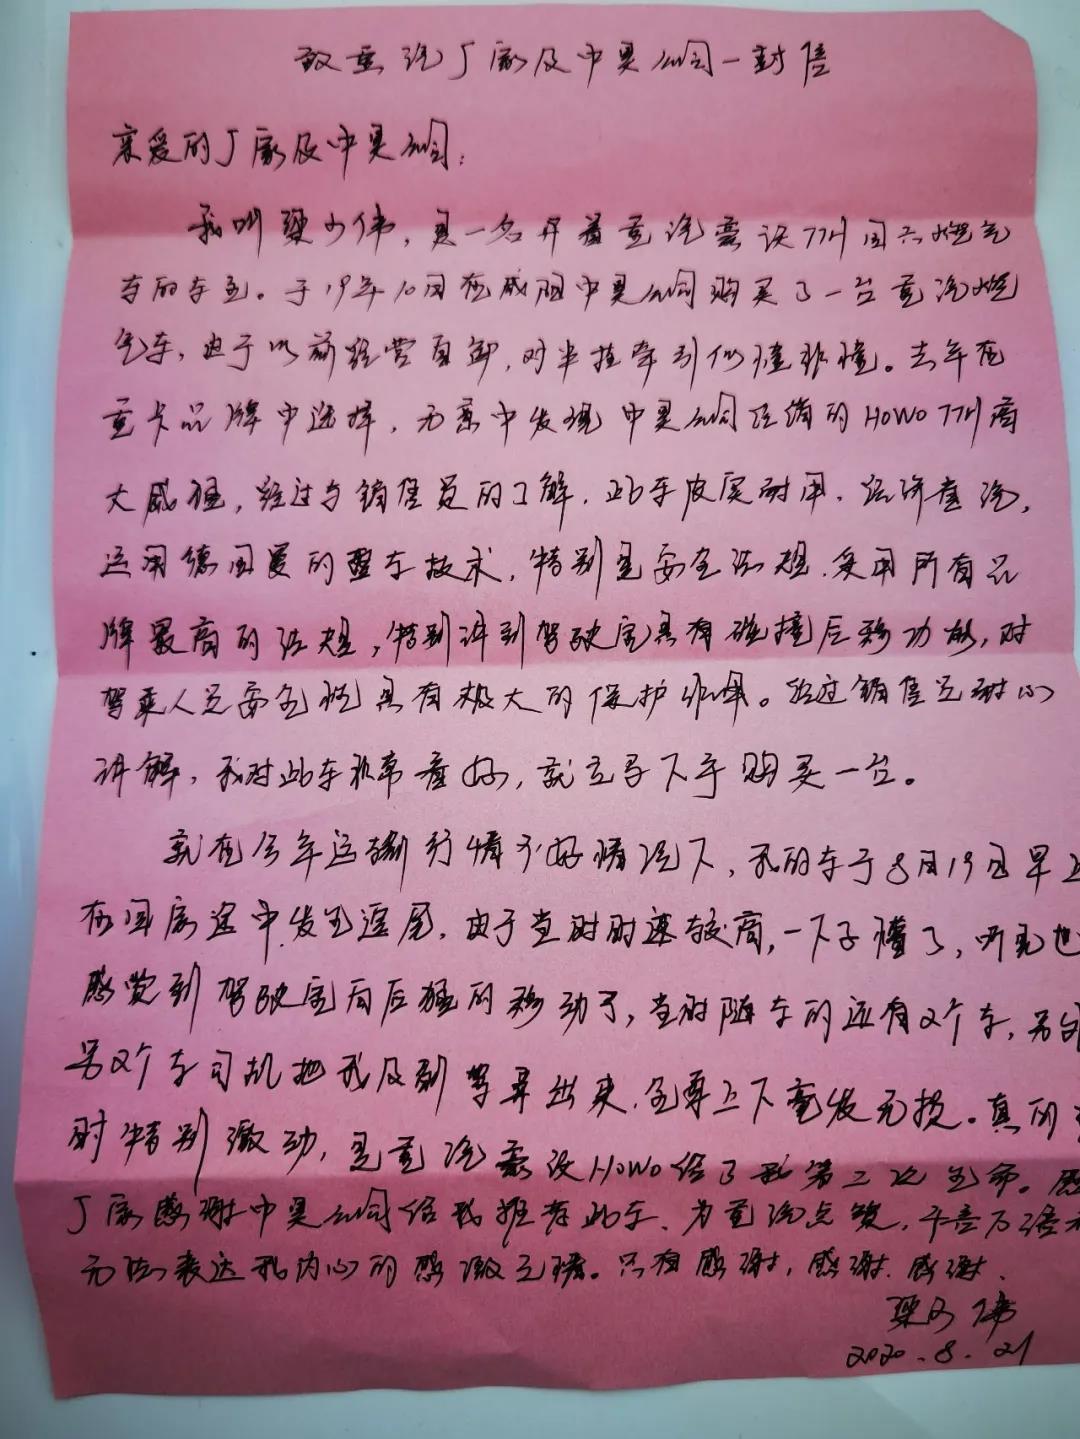 致重汽厂家及中昊公司一封信
亲爱的厂家及中昊公司:
我叫梁少伟,是一名开着重汽豪沃T7H国六燃气
车的车主。于19年10月在咸阳中昊公司购买了一台重汽燃
气车,由于以前经营自卸,对半挂牵引似懂非懂。去年在
重卡品牌中选择,无意中发现中昊公司经销的HOWO T7H高
大威猛,经过与销售员的了解,此车皮实耐用、经济省油,
运用德国曼的整车技术,特别是安全法规,采用所有品
牌最高的法规,特别讲到驾驶室具有碰撞后移功能,对
驾乘人员安全性具有极大的保护作用。经过销售员耐心
讲解,我对此车非常看好,就立马下手购买一台。
就在今年运输行情不好情况下,我的车于8月19日早上
在回家途中发生追尾,由于当时时速较高,一下子懵了,听见也
感觉到驾驶室向后猛的移动了,当时随车的还有2个车,
另2个车司机把我及副驾弄出来,全身上下毫发无损。真的
时特别激动,是重汽豪沃HOWO给了我第二次生命。感
厂家感谢中昊公司给我推荐此车、为重汽点赞,千言万语
无法表达我内心的感激之情。只有感谢,感谢.感谢.
梁少伟
2020.8.21